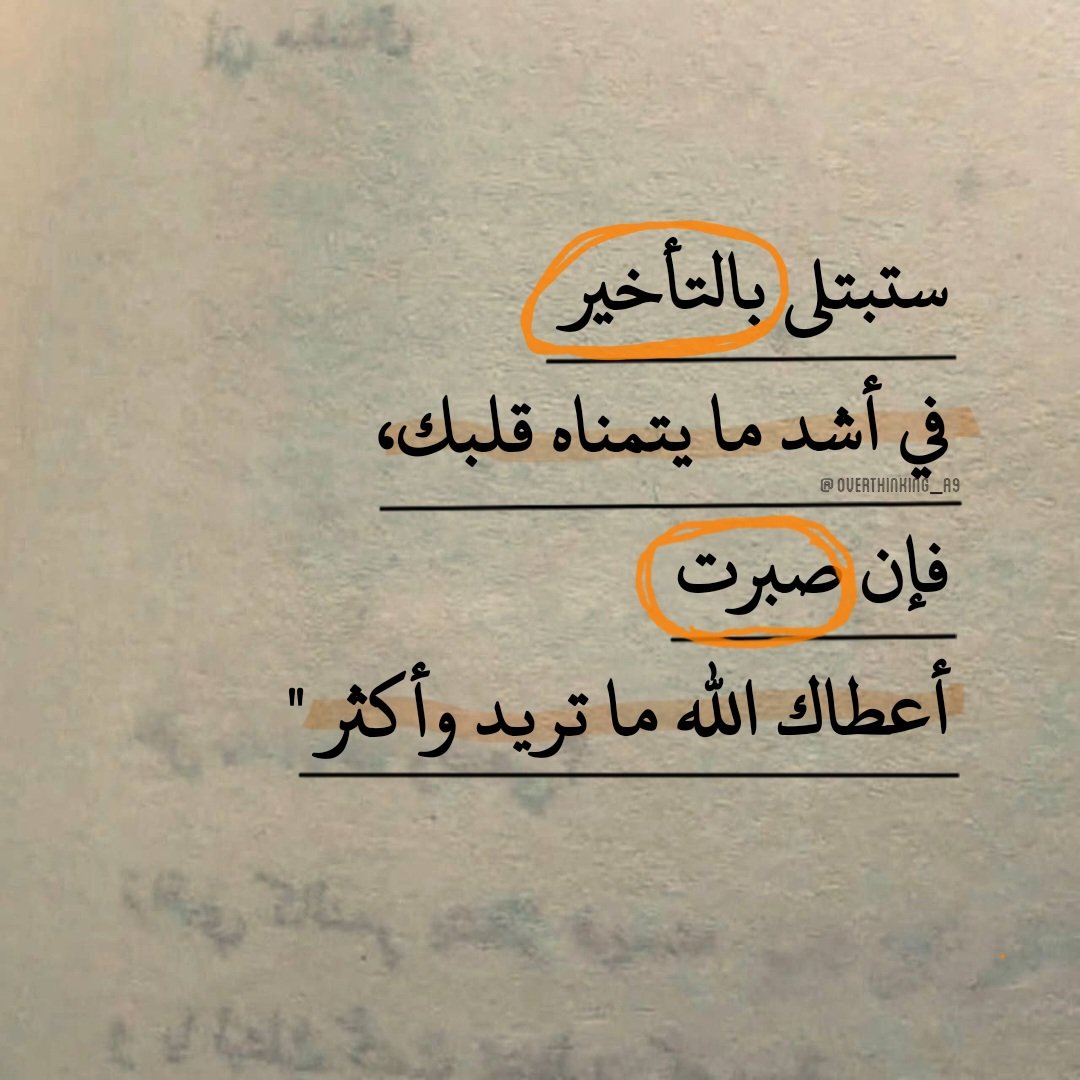 ستبتلى بالتأخير
في أشد ما يتمناه قلبك،
@OVERTHINKING_A9
فإن صبرت
أعطاك الله ما تريد وأكثر "